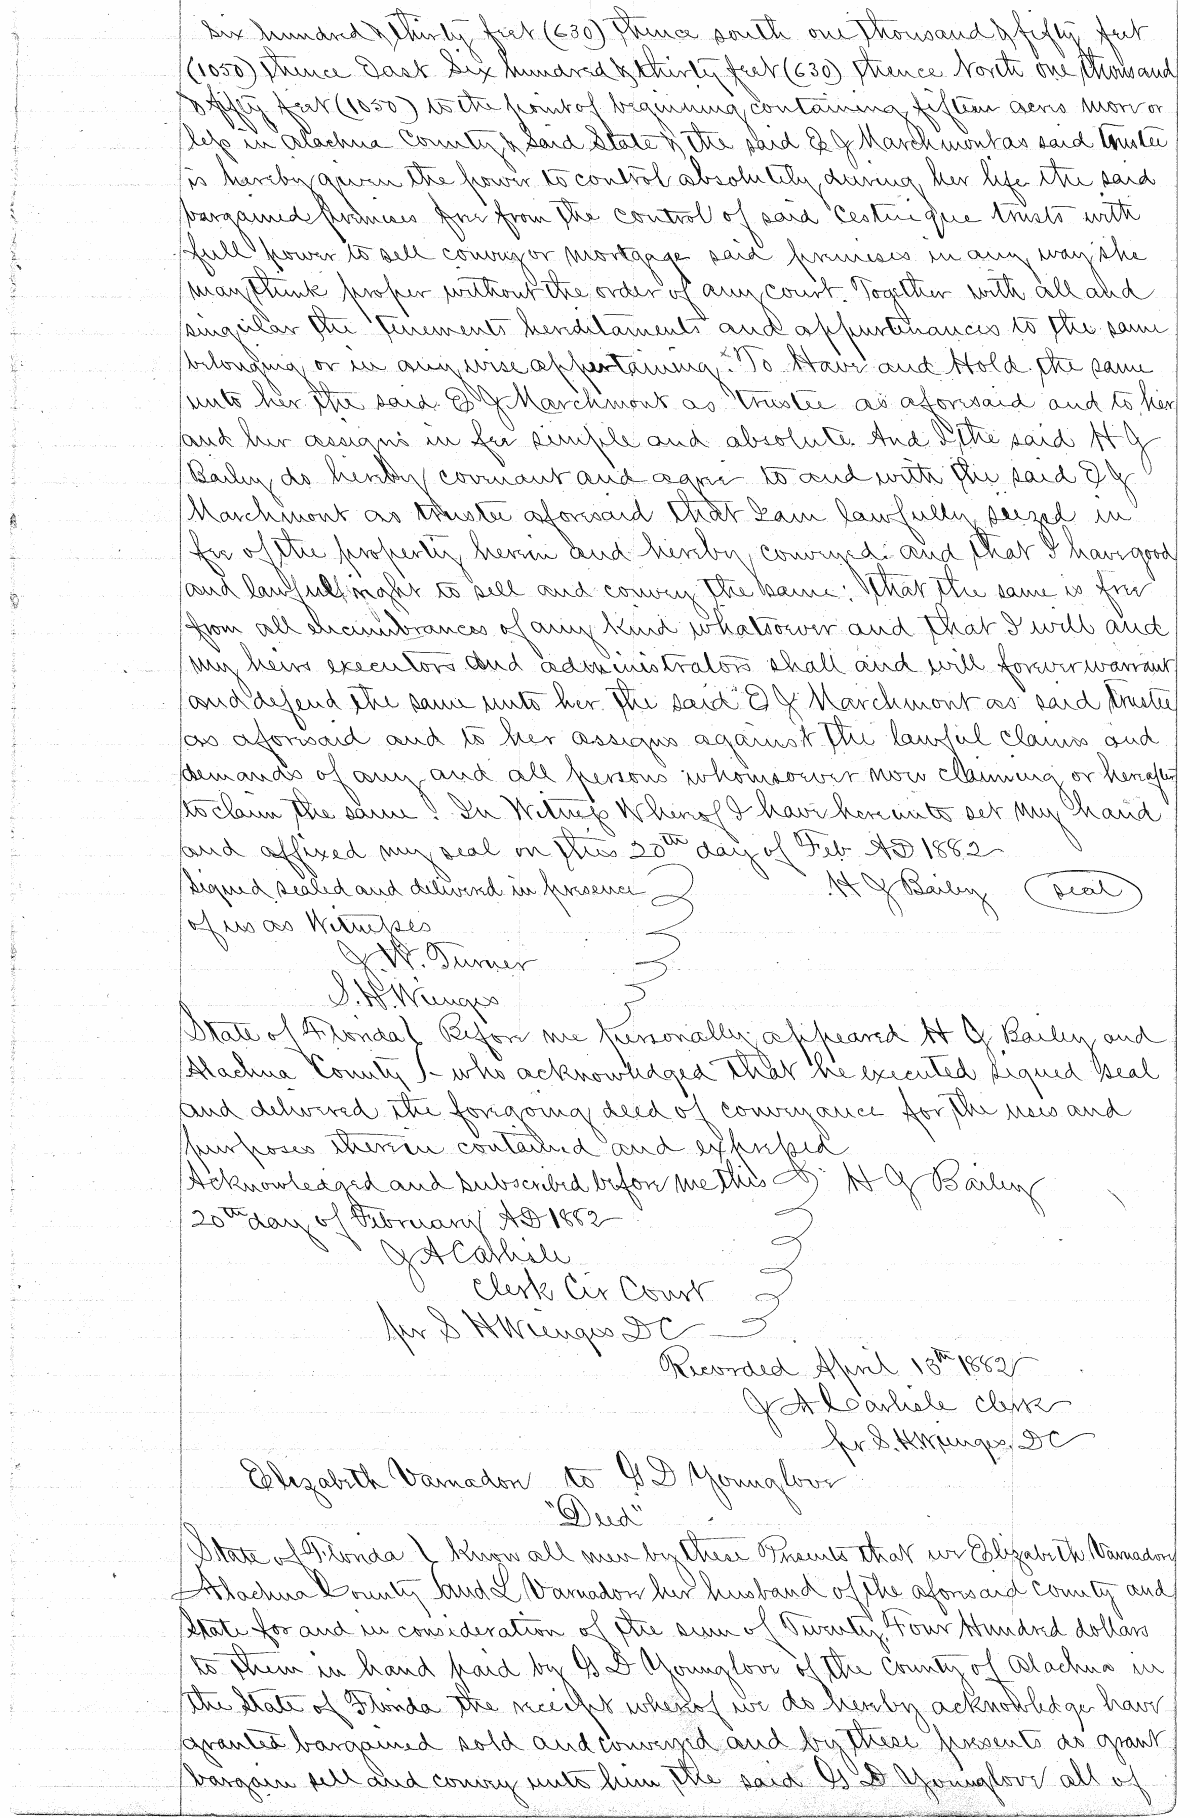 Six hundred & thirty feet (630) thence south one thousand & fifty feet
(1050) thence East Six hundred & thirty feet (630) thence North one thousand
& fifty feet (1050) to the point of beginning containing fifteen acres more or
less in Alachua County & Said State & the said E J Marchmont as said trustee
is hereby given the power to control absolutely during her life the said
bargained premises free from the control of said Cestuique trusts with
full power to sell convey or mortgage said premises in any way she
may think proper without the order of any court. Together with all and
singular the tenements hereditaments and appurtenances to the same
belonging or in any wise appertaining. To Have and Hold the same
unto her the said E J Marchmont as trustee as aforesaid and to her
and her assigns in fee simple and absolute. And I the said H G
Bailey do hereby covenant and agree to and with the said E J
Marchmont as trustee aforesaid that I am lawfully seized in
fee of the property herein and hereby conveyed: and that I have good
and lawful right to sell and convey the same: that the same is free
from all encumbrances of any kind whatsoever and that I will and
my heirs executors and administrators shall and will forever warrant
and defend the same unto her the said E J Marchmont as said trustee
as aforesaid and to her assigns against the lawful claims and
demands of any and all persons whomsoever now claiming or hereafter
to claim the same! In Witness Whereof I have hereunto set my hand
and affixed my seal on this 20th day of Feb AD 1882
Signed sealed and delivered in presence H G Bailey (seal)
of us as Witnesses
J. W. Turner
S. H. Wienges
State of Florida } Before me personally appeared H G Bailey and
Alachua County }- who acknowledged that he executed signed seal
and delivered the foregoing deed of conveyance for the uses and
purposes therein contained and expressed
Acknowledged and subscribed before me this H G Bailey
20th day of February AD 1882
J A Carlisle
Clerk Cir Court
per S H Wienges DC
Recorded April 13th 1882
J A Carlisle Clerk
per S. H. Wienges, DC
Elizabeth Varnadon to G D Younglove
"Deed"
State of Florida } Know all men by these Presents that we Elizabeth Varnadon
Alachua County } and L Varnadon her husband of the aforesaid county and
State for and in consideration of the sum of Twenty Four Hundred dollars
to them in hand paid by G D Younglove of the County of Alachua in
the State of Florida the receipt whereof we do hereby acknowledge have
granted bargained sold and conveyed and by these presents do grant
bargain sell and convey unto him the said G D Younglove all of